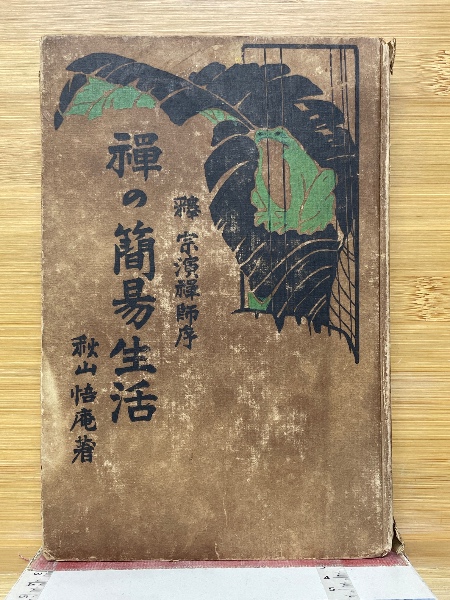 釋宗演禪師序
禪の簡易生活
秋山悟庵著